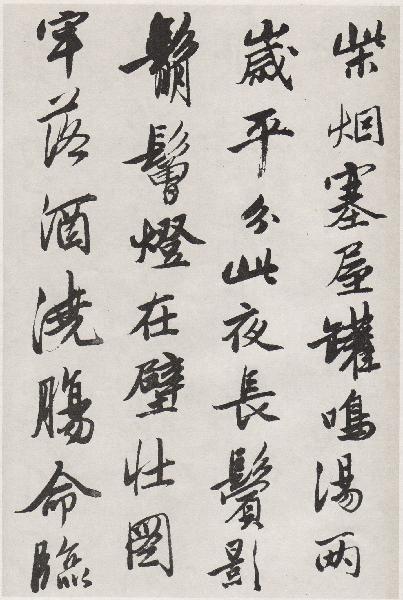 柴烟塞屋罐鳴湯兩
歲平分此夜長鬢影
鬅鬙燈在壁壯圖
牢落酒澆腸命臨